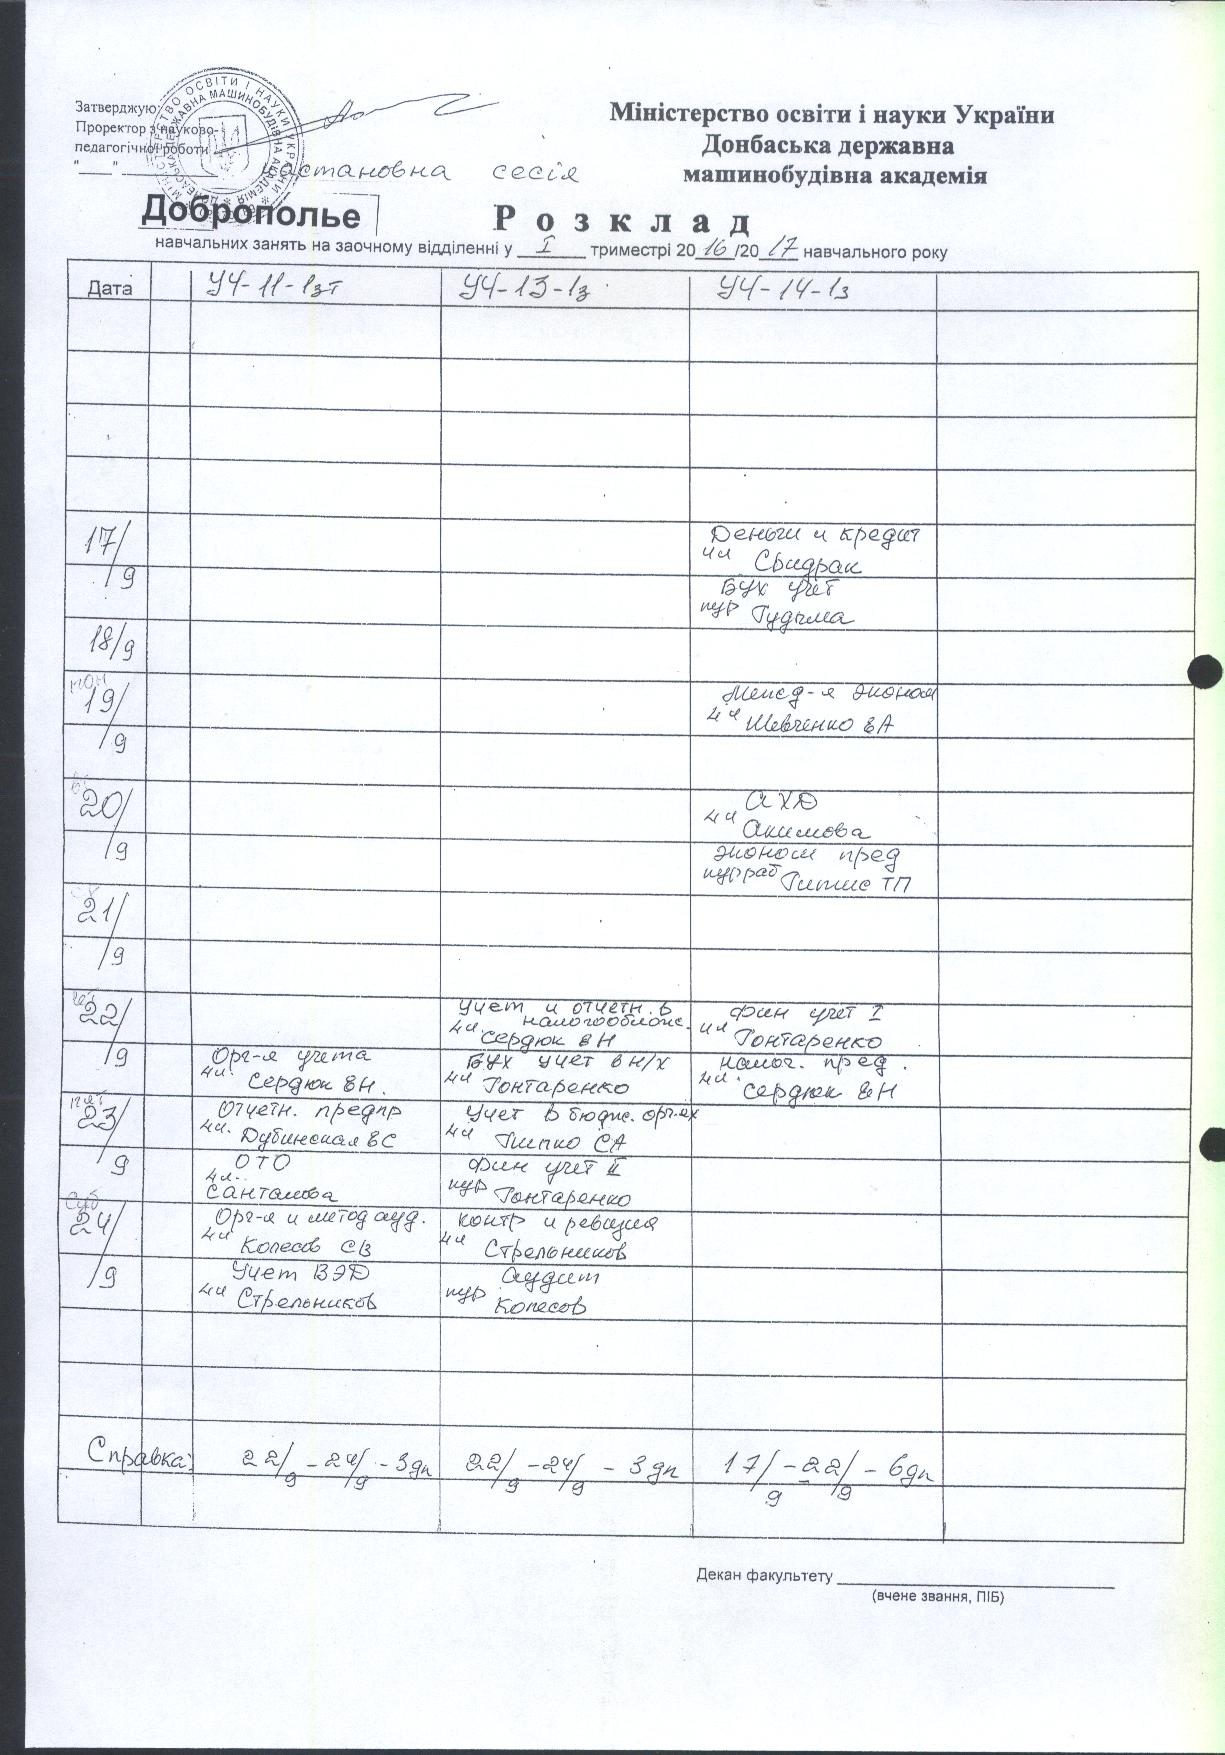 Затверджую:
Проректор з науково-
педагогічної роботи
"___" ____________
МІНІСТЕРСТВО ОСВІТИ І НАУКИ УКРАЇНИ
ДОНБАСЬКА ДЕРЖАВНА МАШИНОБУДІВНА АКАДЕМІЯ
Міністерство освіти і науки України
Донбаська державна
машинобудівна академія
настановна сесія
Доброполье
Розклад
навчальних занять на заочному відділенні у I триместрі 2016/2017 навчального року
Дата УЧ-11-1зт УЧ-13-1з УЧ-14-1з
17/9
Деньги и кредит
4ч Свидрак
Бух учет
пур Гудыма
18/9
пон
19/9
Менед-я эконом
4ч Шевченко ЕА
вт
20/9
АХД
4ч Акимова
эконом пред
пур раб Гитис ТП
ср
21/9
чет
22/9
Учет и отчетн. в
4ч. налогооблож.
Сердюк ВН
фин учет I
4ч Гонтаренко
Орг-я учета
4ч. Сердюк ВН.
Бух учет в н/х
4ч Гонтаренко
налог. пред.
4ч. Сердюк ВН
пят
23/9
Отчетн. предпр
4ч. Дубинская ЕС
Учет в бюдж. орг-ях
4ч Гитко СА
ОТО
4ч..
Санталова
фин учет II
пур Гонтаренко
суб
24/9
Орг-я и метод ауд.
4ч Колесов СВ
контр и ревизия
4ч Стрельников
Учет ВЭД
4ч Стрельников
аудит
пур Колесов
Справка: 22/9 - 24/9 - 3дн 22/9 - 24/9 - 3дн 17/9 - 22/9 - 6дн
Декан факультету ____________________
(вчене звання, ПІБ)